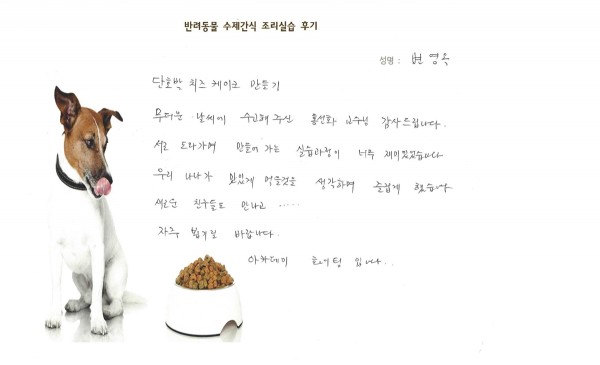 반려동물 수제간식 조리실습 후기
성명 : 변 영옥
단호박 치즈 케이크 만들기
무더운 날씨에 수고해주신 홍선화 교수님 감사드립니다.
서로 도와가며 만들어 가는 실습과정이 너무 재미있었습니다
우리 나나가 맛있게 먹을것을 생각하며 즐겁게 했습니다
새로운 친구들도 만나고 .....
자주 뵙기를 바랍니다.
아카데미 화이팅 입니다..